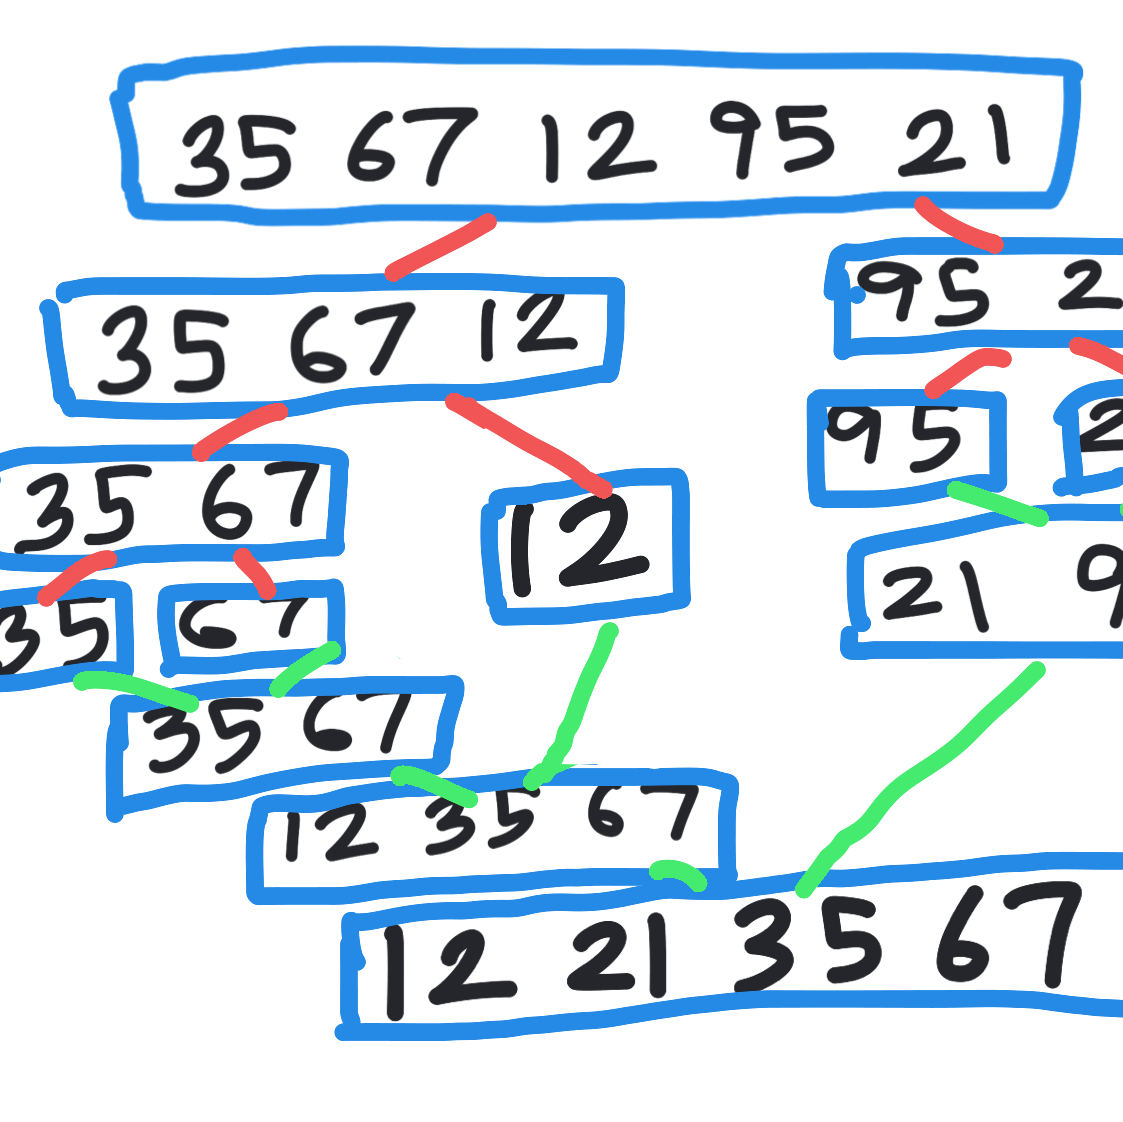 35 67 12 95 21
35 67 12
95 2
95
2
35 67
12
21 9
35
67
35 67
12 35 67
12 21 35 67